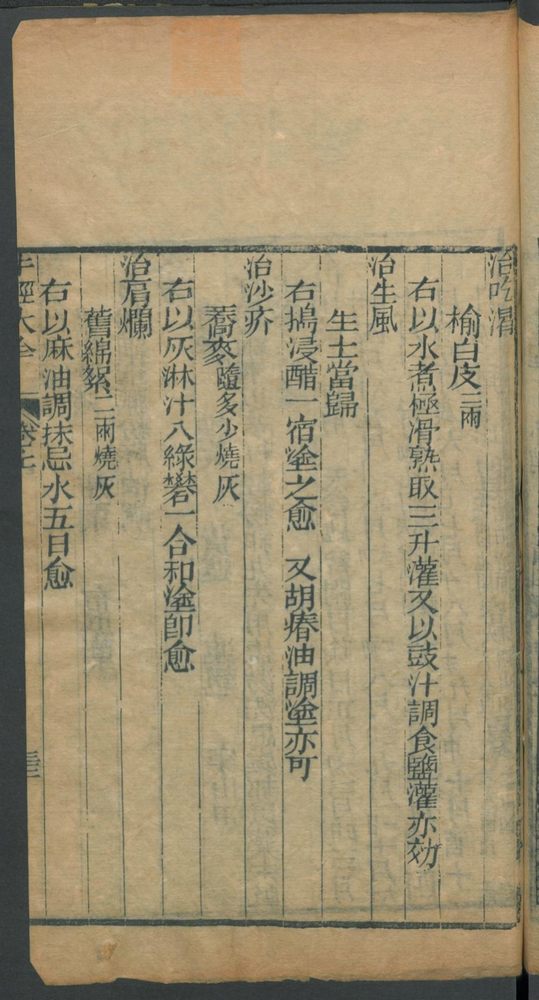 治吃混
榆白皮三兩
右以水煮極滑熟取三升灌又以豉汁調食鹽灌亦効
治生風
生土當歸
右搗浸醋一宿塗之愈 又胡麻油調塗亦可
治沙疥
蕎麥隨多少燒灰
右以灰淋汁入綠礬一合和塗卽愈
治肩爛
舊綿絮二兩燒灰
右以麻油調抹忌水五日愈
牛經大全
卷之
三